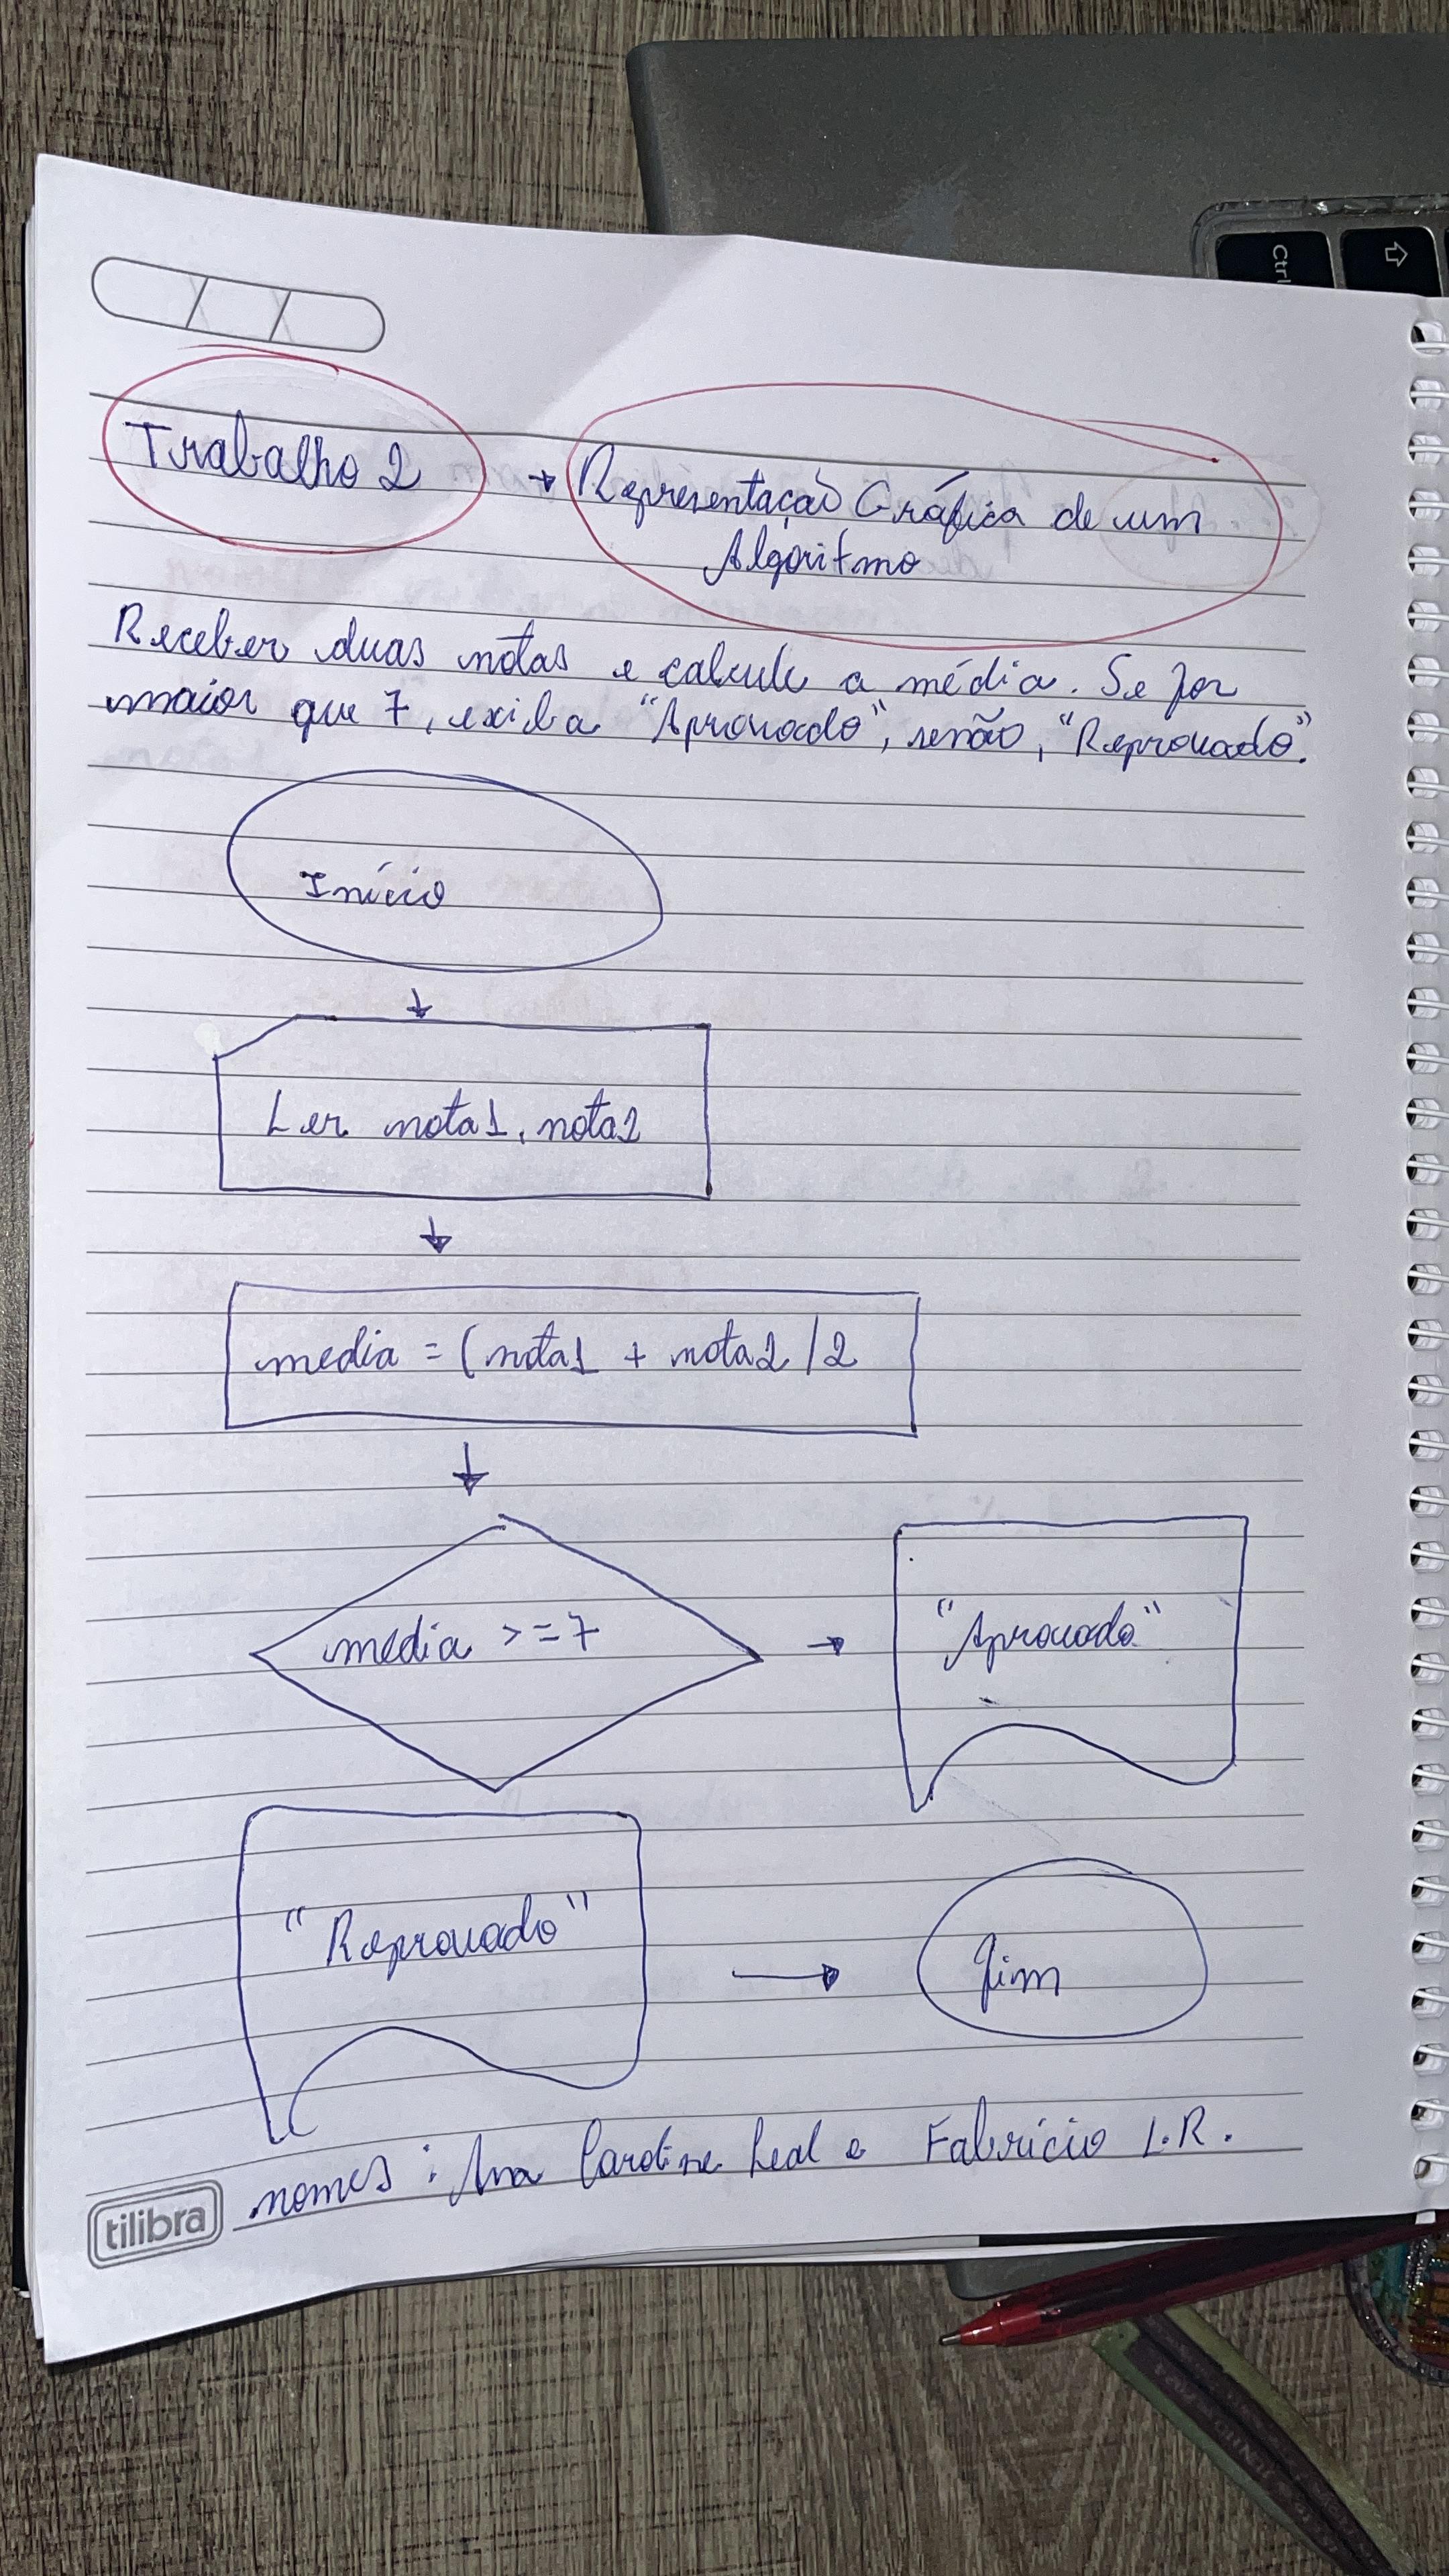 Ctrl
Trabalho 2 → Representação Gráfica de um
Algoritmo
Receber duas notas e calcule a média. Se for
maior que 7, exiba "Aprovado", senão, "Reprovado".
Início
Ler nota1, nota2
media = (nota1 + nota2 /2
media >=7 → "Aprovado"
"Reprovado" → fim
nomes: Ana Caroline Leal e Fabrício L.R.
tilibra